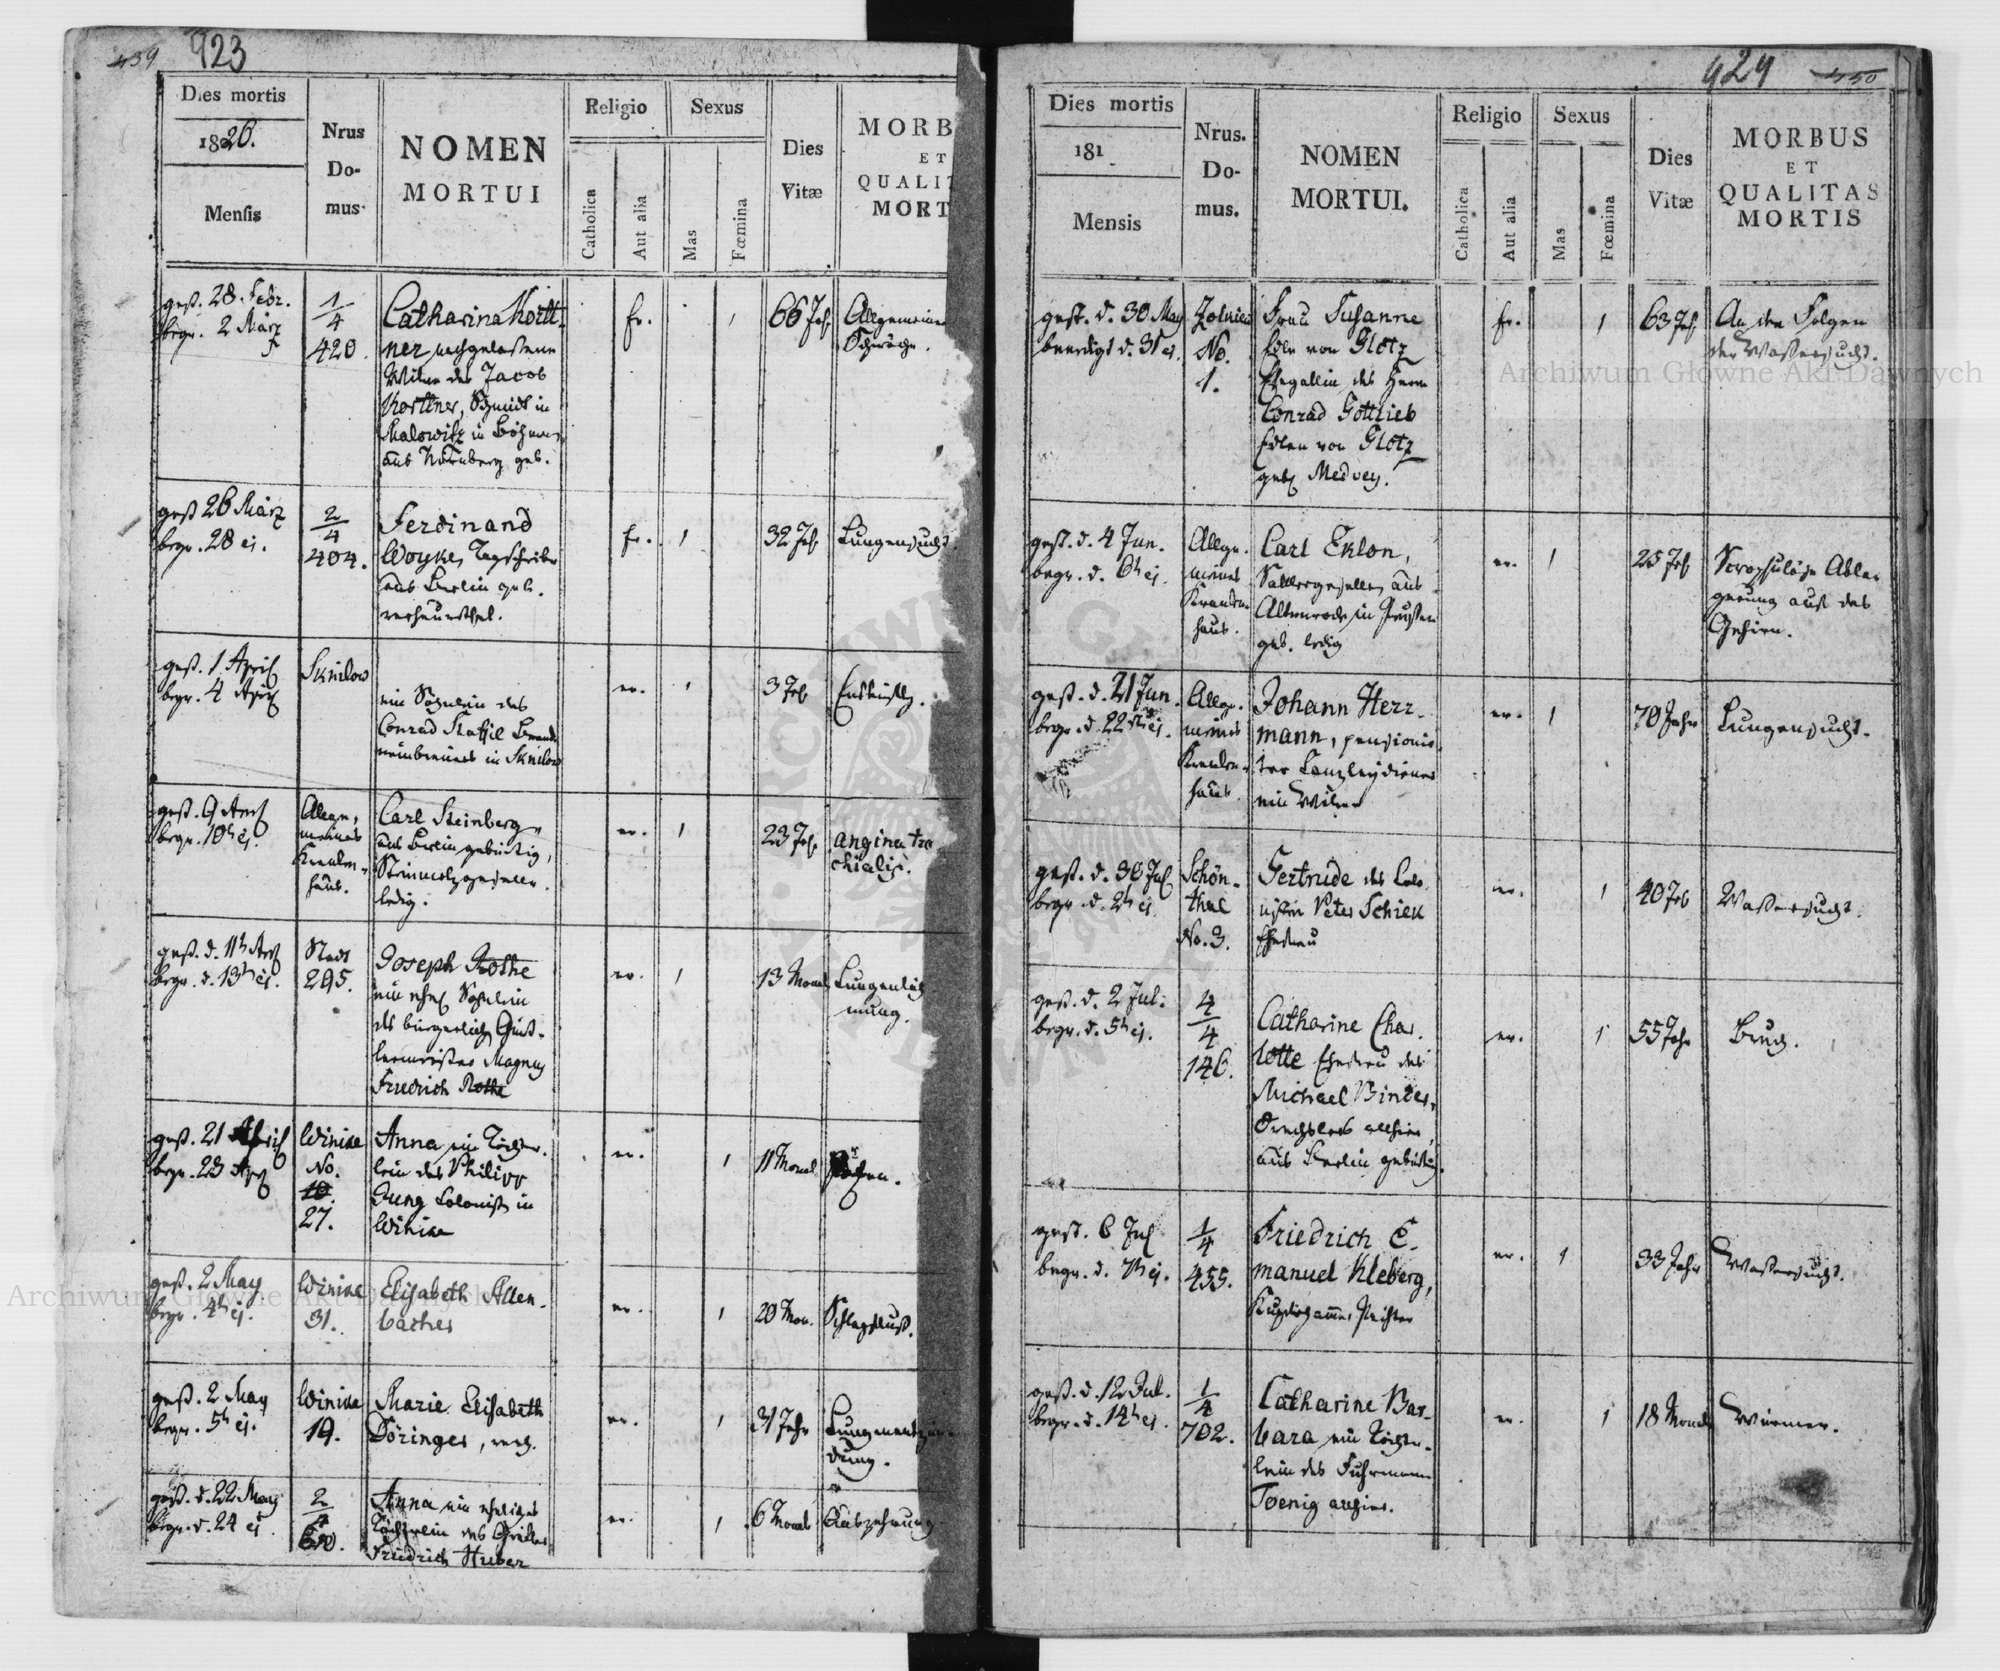 439 923
Dies mortis
1826.
Mensis
Nrus
Do-
mus
NOMEN
MORTUI
Religio
Catholica
Aut alia
Sexus
Mas
Fœmina
Dies
Vitæ
MORB
ET
QUALIT
MORT
gest. 28. Febr.
begr. 2 März
1/4
420.
Catharina Kortt-
ner nachgelassene
Witwe des Jacob
Korttner, Schmidt in
Malowitz in Böhmen,
aus Nürnberg geb.
1
66 Jah
Allgemeine
Schwäche.
gest 26 März
begr. 28 ej.
2/4
404.
Ferdinand
Woyke, Tagschreiber
aus Berlin geb.
verheurathet.
1
32 Jah
Lungensucht.
gest. 1. April
begr. 4 April
Sknilow
ein Söhnlein des
Conrad Brand-
weinbrenners in Sknilow
1
3 Jah
gest. 9 April
begr. 10th ej.
Allge-
meines
Kranken-
haus.
Carl Steinberg,
aus Berlin gebürtig,
Steinmetzgeselle.
ledig.
1
23 Jah
angina tra
chialis.
gest. d. 11th April
begr. d. 13th ej.
Stadt
295.
Joseph Rothe
ein ehel. Söhnlein
des bürgerlich
Magnus
Friedrich Rothe
1
13 Monat
Lungenläh
mung.
gest. 21 April
begr. 23 April
Winike
No.
10.
27.
Anna ein Töchter-
lein des Philipp
Jung Colonist in
Winike
1
11 Monat
gest. 2 May
begr. 4th ej.
Winike
31.
Elisabeth Allen-
bacher
1
20 Mon.
Schlagfluß.
gest. 2 May
begr. 5th ej.
Winike
19.
Marie Elisabeth
Döringer,
1
31 Jahr
Lungenentzün-
dung.
gest. d. 22 May
begr. d. 24 ej.
2/4
Anna ein eheliches
Töchterlein des
Friedrich Huber
1
6 Monat
Auszehrung
924 450
Dies mortis
181
Mensis
Nrus.
Do-
mus.
NOMEN
MORTUI.
Religio
Catholica
Aut alia
Sexus
Mas
Fœmina
Dies
Vitæ
MORBUS
ET
QUALITAS
MORTIS
gest. d. 30 May
beerdigt d. 31 ej.
No.
1.
Frau Susanne
Edle von Glotz
Ehegattin des Herrn
Conrad Gottlieb
Edlen von Glotz
geb. Medvey.
1
63 Jah
An den Folgen
der Wassersucht.
gest. d. 4 Jun.
begr. d. 6th ej.
Allge-
meines
Kranken-
haus.
Carl Eklon,
Sattlergeselle, aus
Altenrode in Preussen
geb. ledig
1
25 Jah
Scrophulöse Abla-
gerung auf das
Gehirn.
gest. d. 21 Jun.
begr. d. 22 ej.
Allge-
meines
Kranken-
haus
Johann Herr-
mann, pensionir-
ter Canzleydiener
ein Witwer
1
70 Jahr
Lungensucht.
gest. d. 30
begr. d. 2th ej.
Schön-
thal
No. 3.
Gertrude des Colo-
nisten Peter Schick
Ehefrau
1
40 Jah
Wassersucht.
gest. d. 2 Jul.
begr. d. 5th ej.
4/4
146.
Catharine Char-
lotte Ehefrau des
Michael Binder,
Drechslers allhier,
aus Berlin gebürtig.
1
55 Jahr
Bruch.
gest. 6 Jul
begr. d. 7th ej.
1/4
455.
Friedrich E-
manuel Kleberg,
1
33 Jahr
Wassersucht.
gest. d. 12 Jul.
begr. d. 14th ej.
1/4
702.
Catharine Bar-
bara ein Töchter-
lein des Fuhrmann
Toenig allhier.
1
18 Monat
Würmer.
Archiwum Główne Akt Dawnych
Archiwum Główne Akt Dawnych